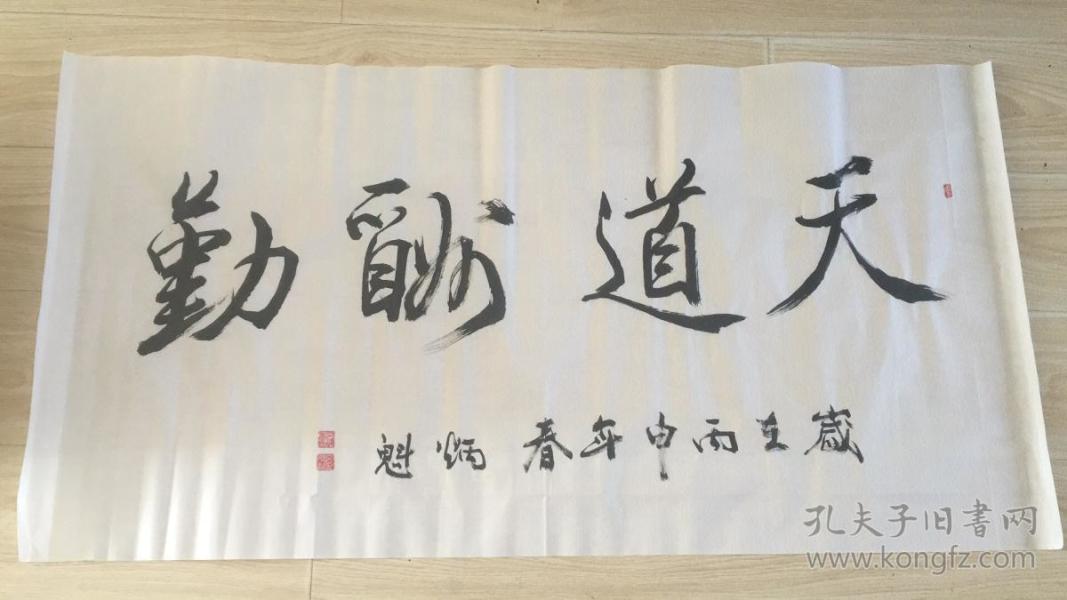 天道酬勤
歲在丙申年春 炳魁
孔夫子旧書网
www.kongfz.com